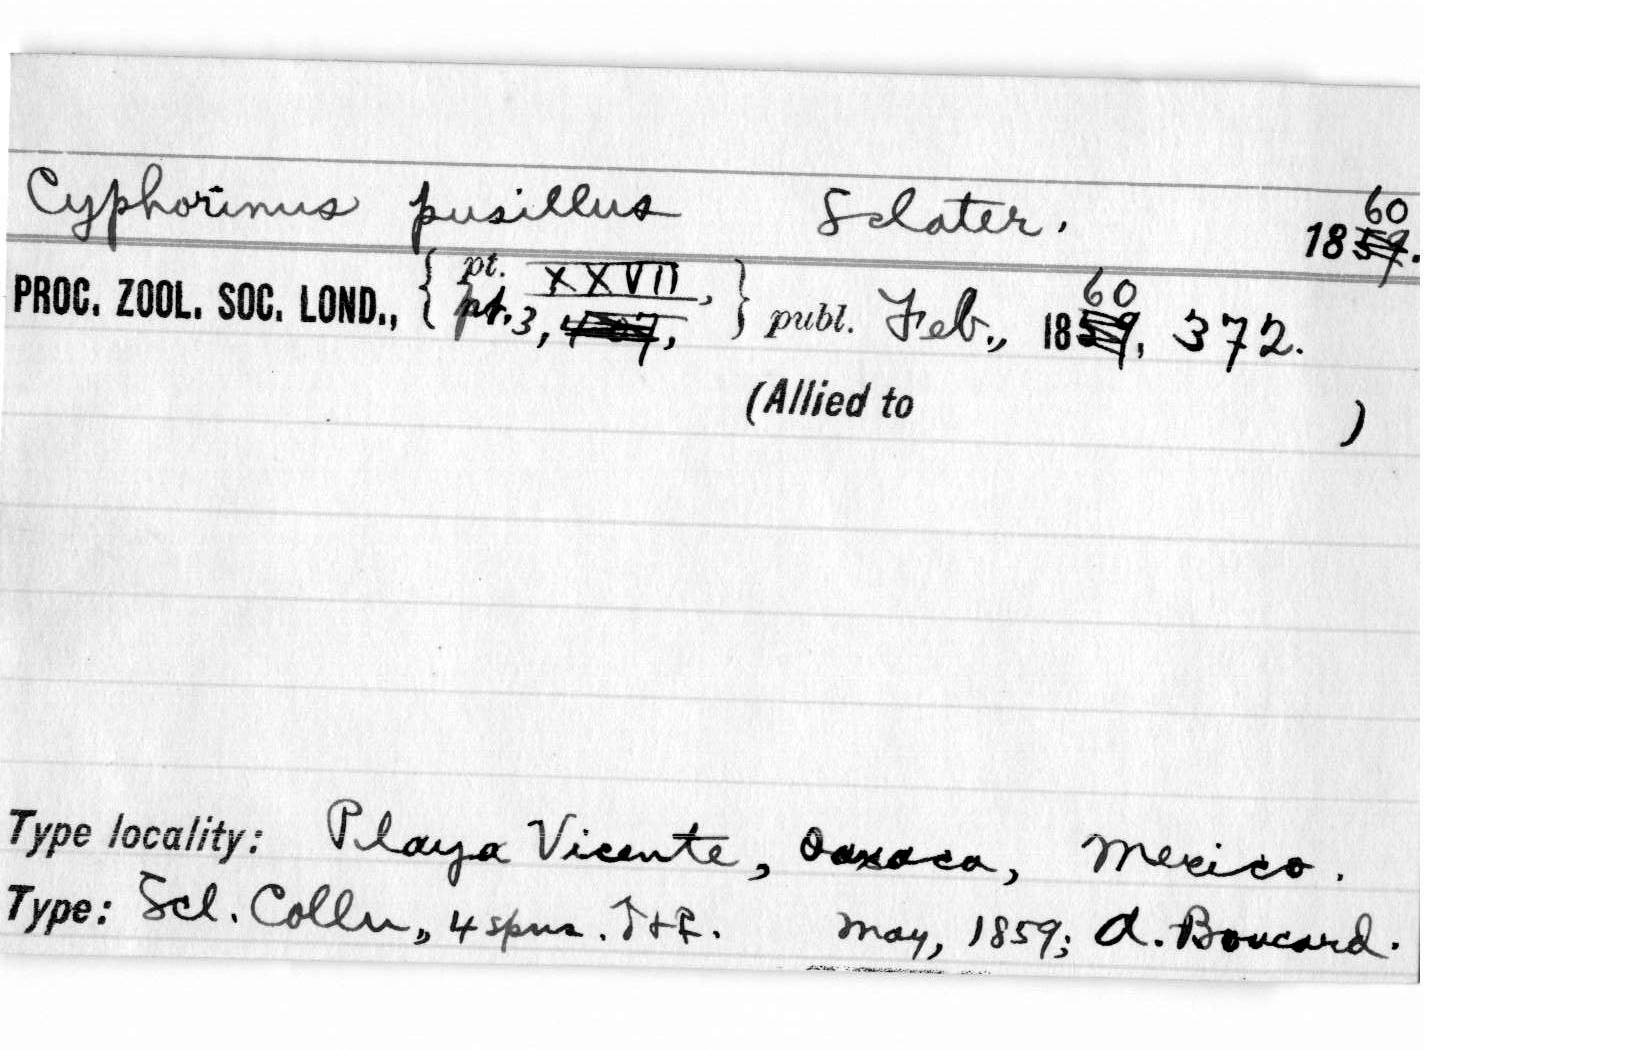 Cyphorinus pusillus Sclater. 1859. 60
PROC. ZOOL. SOC. LOND., { pt. XXVII, pt. 3, } publ. Feb., 1859, 60 372.
(Allied to )
Type locality: Playa Vicente, Oaxaca, Mexico.
Type: Scl. Colln., 4 spns. May, 1859; A. Boucard.